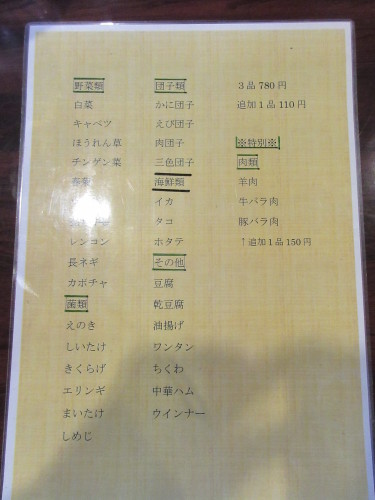 野菜類
白菜
キャベツ
ほうれん草
チンゲン菜
春菊
レンコン
長ネギ
カボチャ
菌類
えのき
しいたけ
きくらげ
エリンギ
まいたけ
しめじ
団子類
かに団子
えび団子
肉団子
三色団子
海鮮類
イカ
タコ
ホタテ
その他
豆腐
乾豆腐
油揚げ
ワンタン
ちくわ
中華ハム
ウインナー
3品780円
追加1品110円
※特別※
肉類
羊肉
牛バラ肉
豚バラ肉
↑追加1品150円